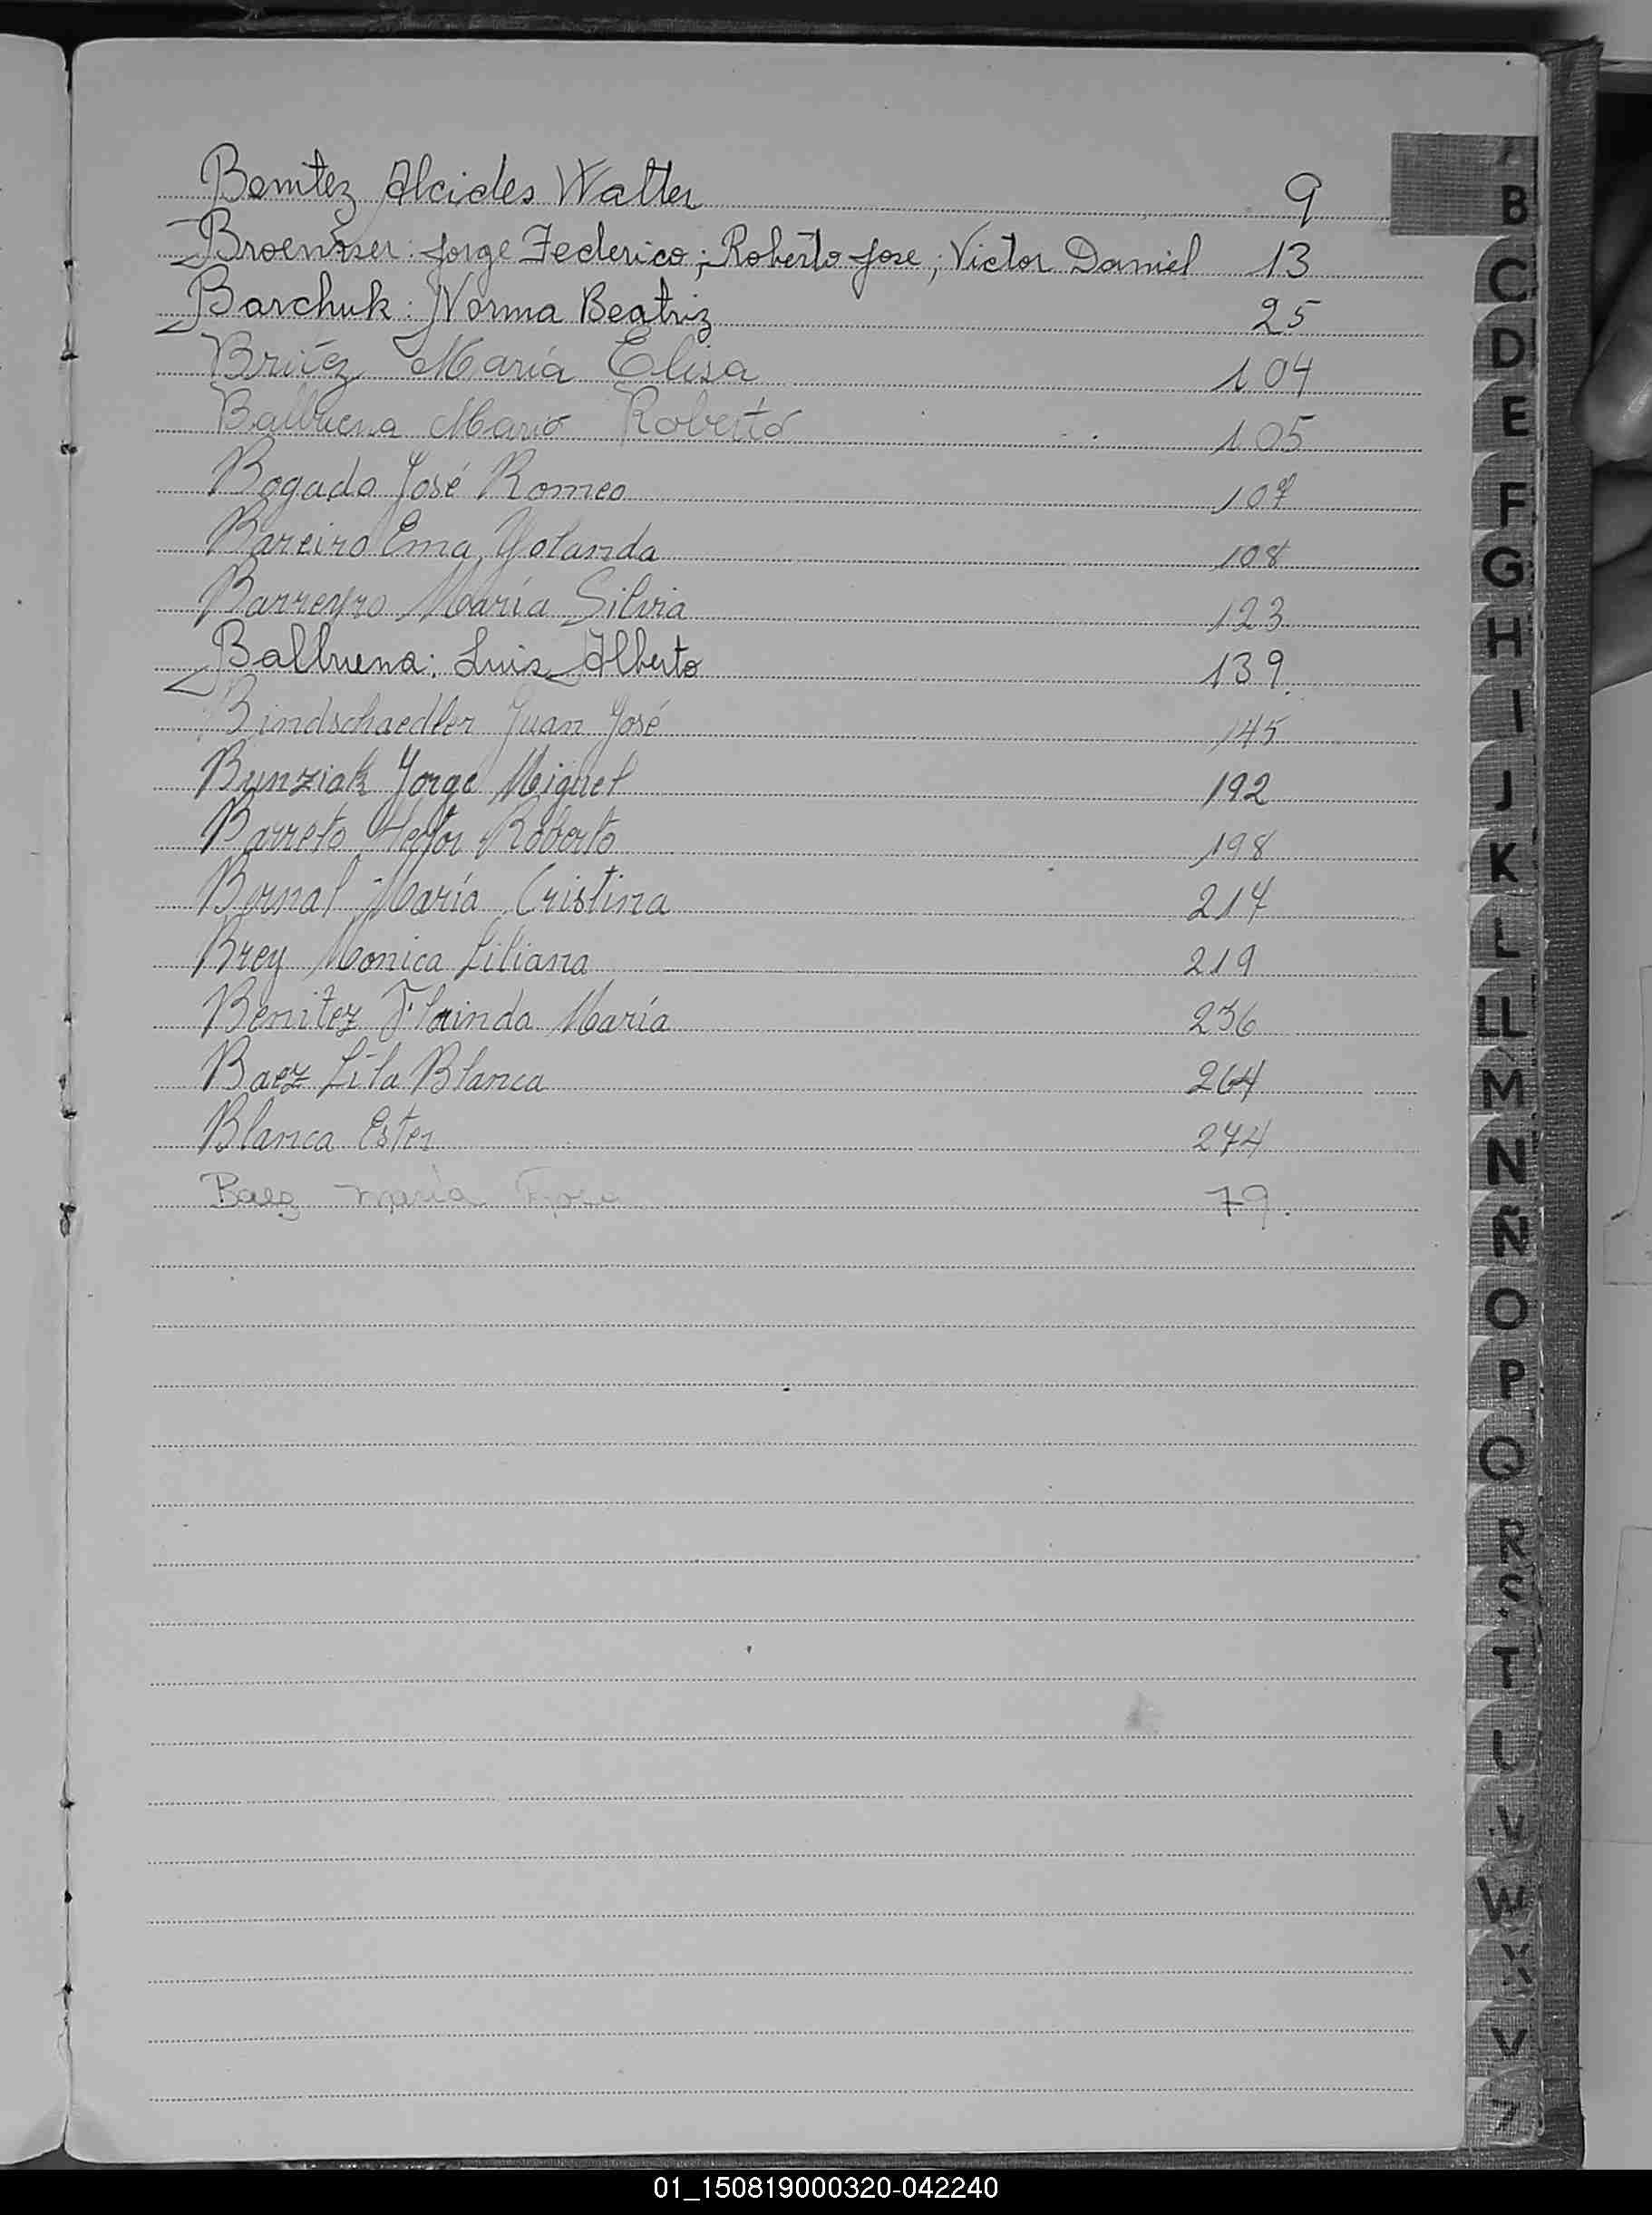 Benitez Alcides Walter 9
Broenner: Jorge Federico; Roberto Jose; Victor Daniel 13
Barchuk: Norma Beatriz 25
Britez María Elisa 104
Balbuena Mario Roberto 105
Bogado José Romeo 107
Bareiro Ema Yolanda 108
Barreyro María Silvia 123
Balbuena: Luis Alberto 139.
Bindschaedler Juan José 145
Bunziak Jorge Miguel 192
Barreto Hector Roberto 198
Bernal María Cristina 214
Brey Monica Liliana 219
Benitez María 236
Baez Lila Blanca 264
Blanca Ester 274
Baez María 79.
B
C
D
E
F
G
H
I
J
K
L
LL
M
N
Ñ
O
P
Q
R
S
T
U
V
W
X
Y
Z
01_150819000320-042240